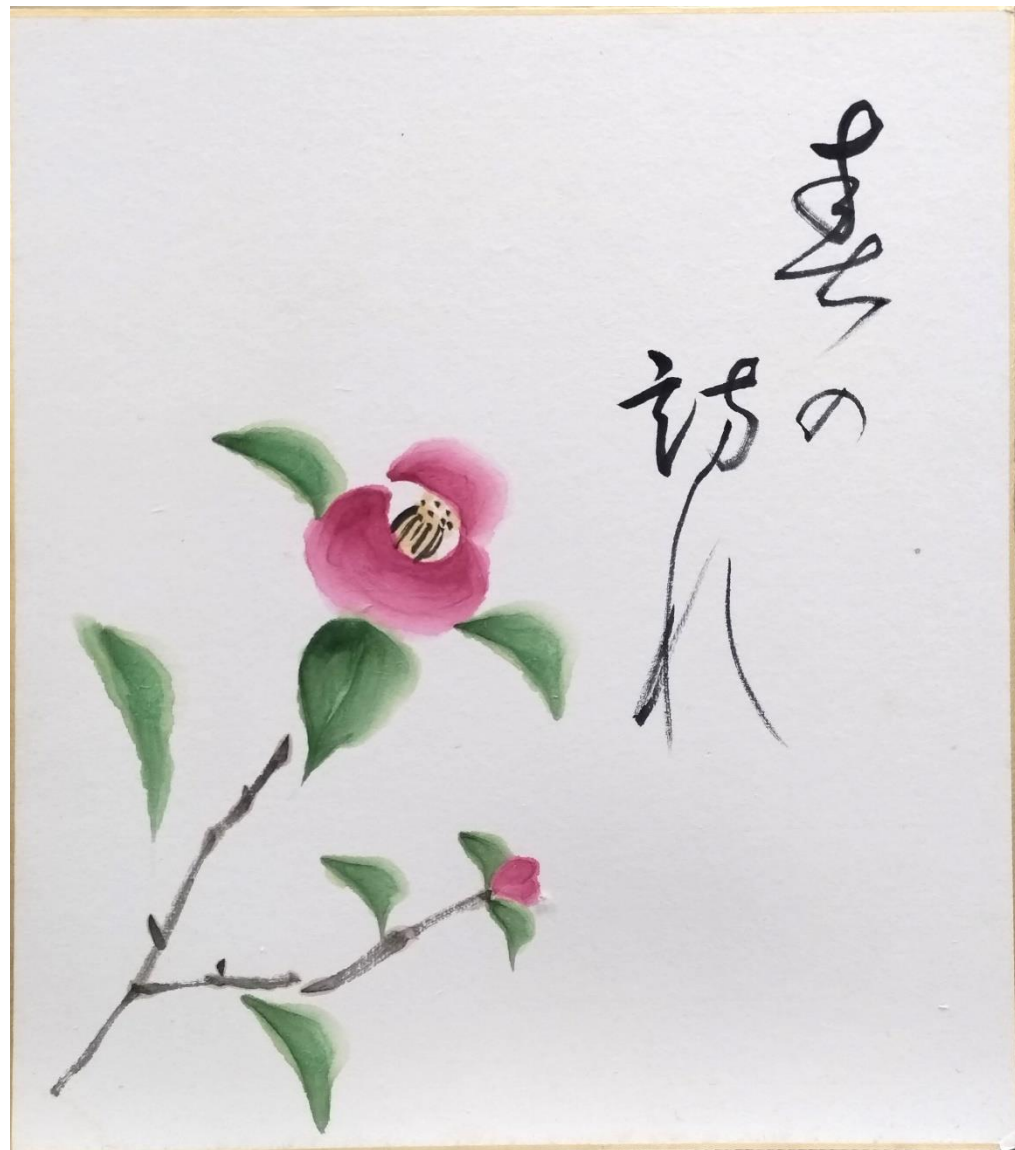 春の
訪れ